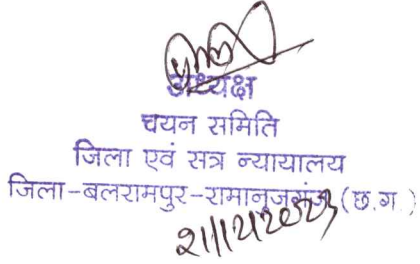 अध्यक्ष
चयन समिति
जिला एवं सत्र न्यायालय
जिला-बलरामपुर-रामानुजगंज (छ.ग.)
21/12/2023